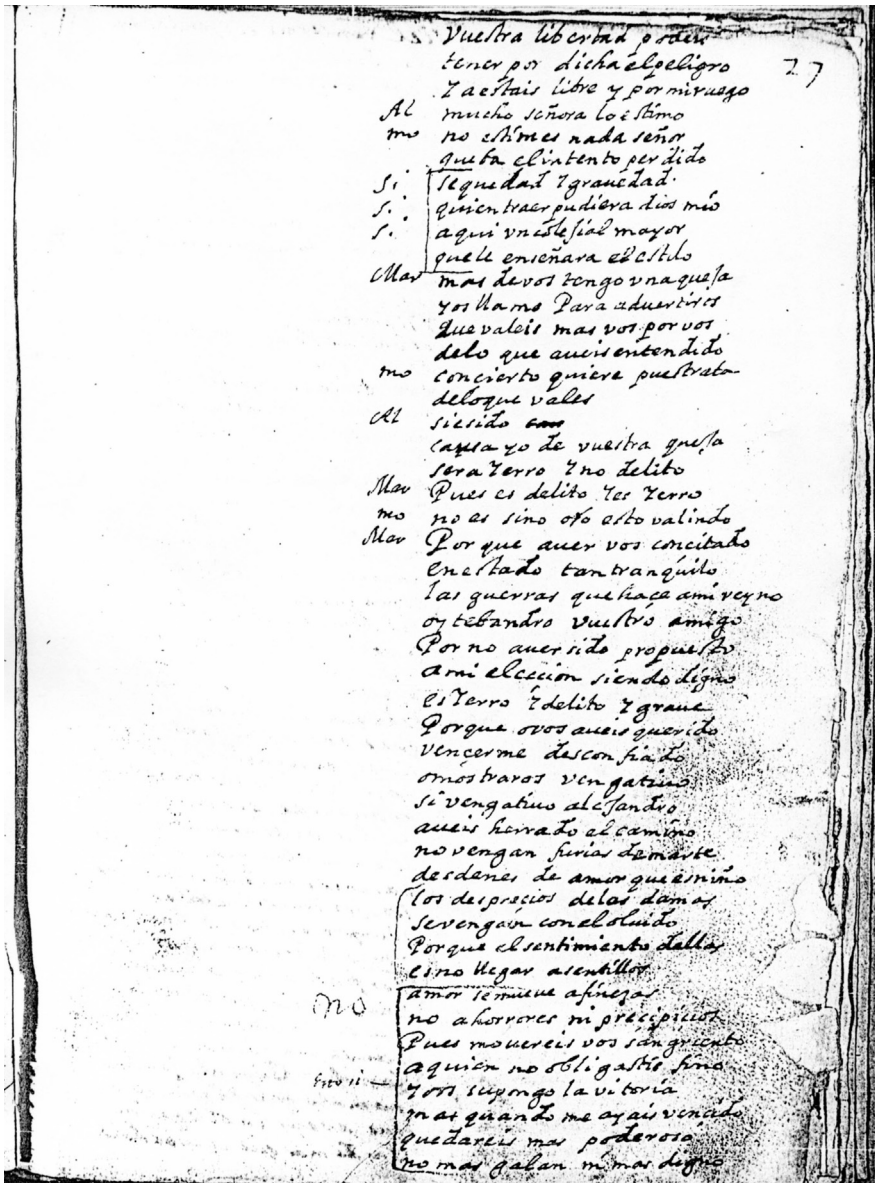 27
Vuestra libertad podeis
tener por dicha el peligro
Ya estais libre y por mi ruego
Al mucho señora lo estimo
mo no estimes nada señor
que ba el intento perdido
si sequedad y grauedad
si quien traer pudiera dios mio
si aqui vn colesial mayor
que le enseñara el estilo
Mar mas de vos tengo vna quesa
y os llamo Para aduertiros
Que valeis mas vos por vos
delo que aueis entendido
mo concierto quiere pues trata
delo que vales
Al si e sido
causa yo de vuestra quesa
sera Yerro Y no delito
Mar Pues es delito Y es Yerro
mo no es sino esto valindo
Mar Por que auer vos concitado
en estado tan tranquilo
las guerras que hace ami reyno
oy tebandro vuestro amigo
Por no auer sido propuesto
a mi eleccion siendo digno
es Yerro Y delito Y graue
Porque o vos aueis querido
vencerme desconfiado
o mostraros vengatiuo
si vengatiuo alesandro
aueis herrado el camino
no vengan furias de marte
desdenes de amor que es niño
los desprecios delas damas
se vengan con el oluido
Porque el sentimiento dellas
es no llegar a sentillos
no amor se mueve a finezas
no a horrores ni precipicios
Pues mouereis vos sangriento
a quien no obligastis fino
y os supongo la vitoria
mas quando me ayais vencido
quedareis mas poderoso
no mas galan ni mas digno